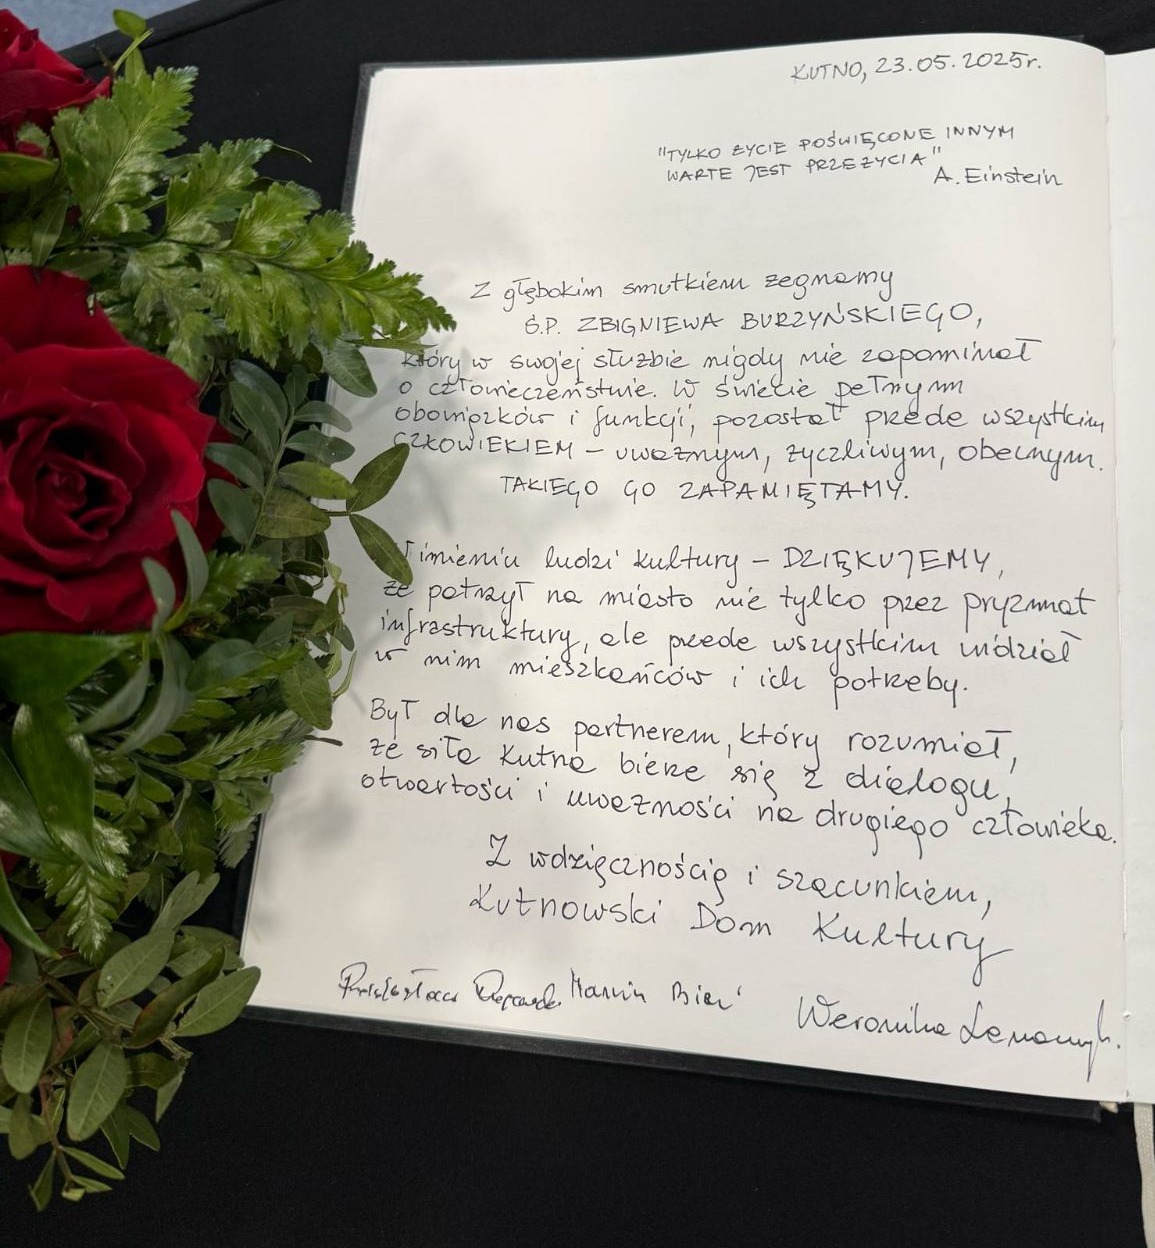 KUTNO, 23.05.2025r.
"TYLKO ŻYCIE POŚWIĘCONE INNYM
WARTE JEST PRZEŻYCIA"
A. Einstein
Z głębokim smutkiem żegnamy
Ś.P. ZBIGNIEWA BURZYŃSKIEGO,
który w swojej służbie nigdy nie zapominał
o człowieczeństwie. W świecie pełnym
obowiązków i funkcji, pozostał przede wszystkim
CZŁOWIEKIEM – uważnym, życzliwym, obecnym.
TAKIEGO GO ZAPAMIĘTAMY.
W imieniu ludzi kultury – DZIĘKUJEMY,
że patrzył na miasto nie tylko przez pryzmat
infrastruktury, ale przede wszystkim widział
w nim mieszkańców i ich potrzeby.
Był dla nas partnerem, który rozumiał,
że siła Kutna bierze się z dialogu,
otwartości i uważności na drugiego człowieka.
Z wdzięcznością i szacunkiem,
Kutnowski Dom Kultury
Marcin
Weronika